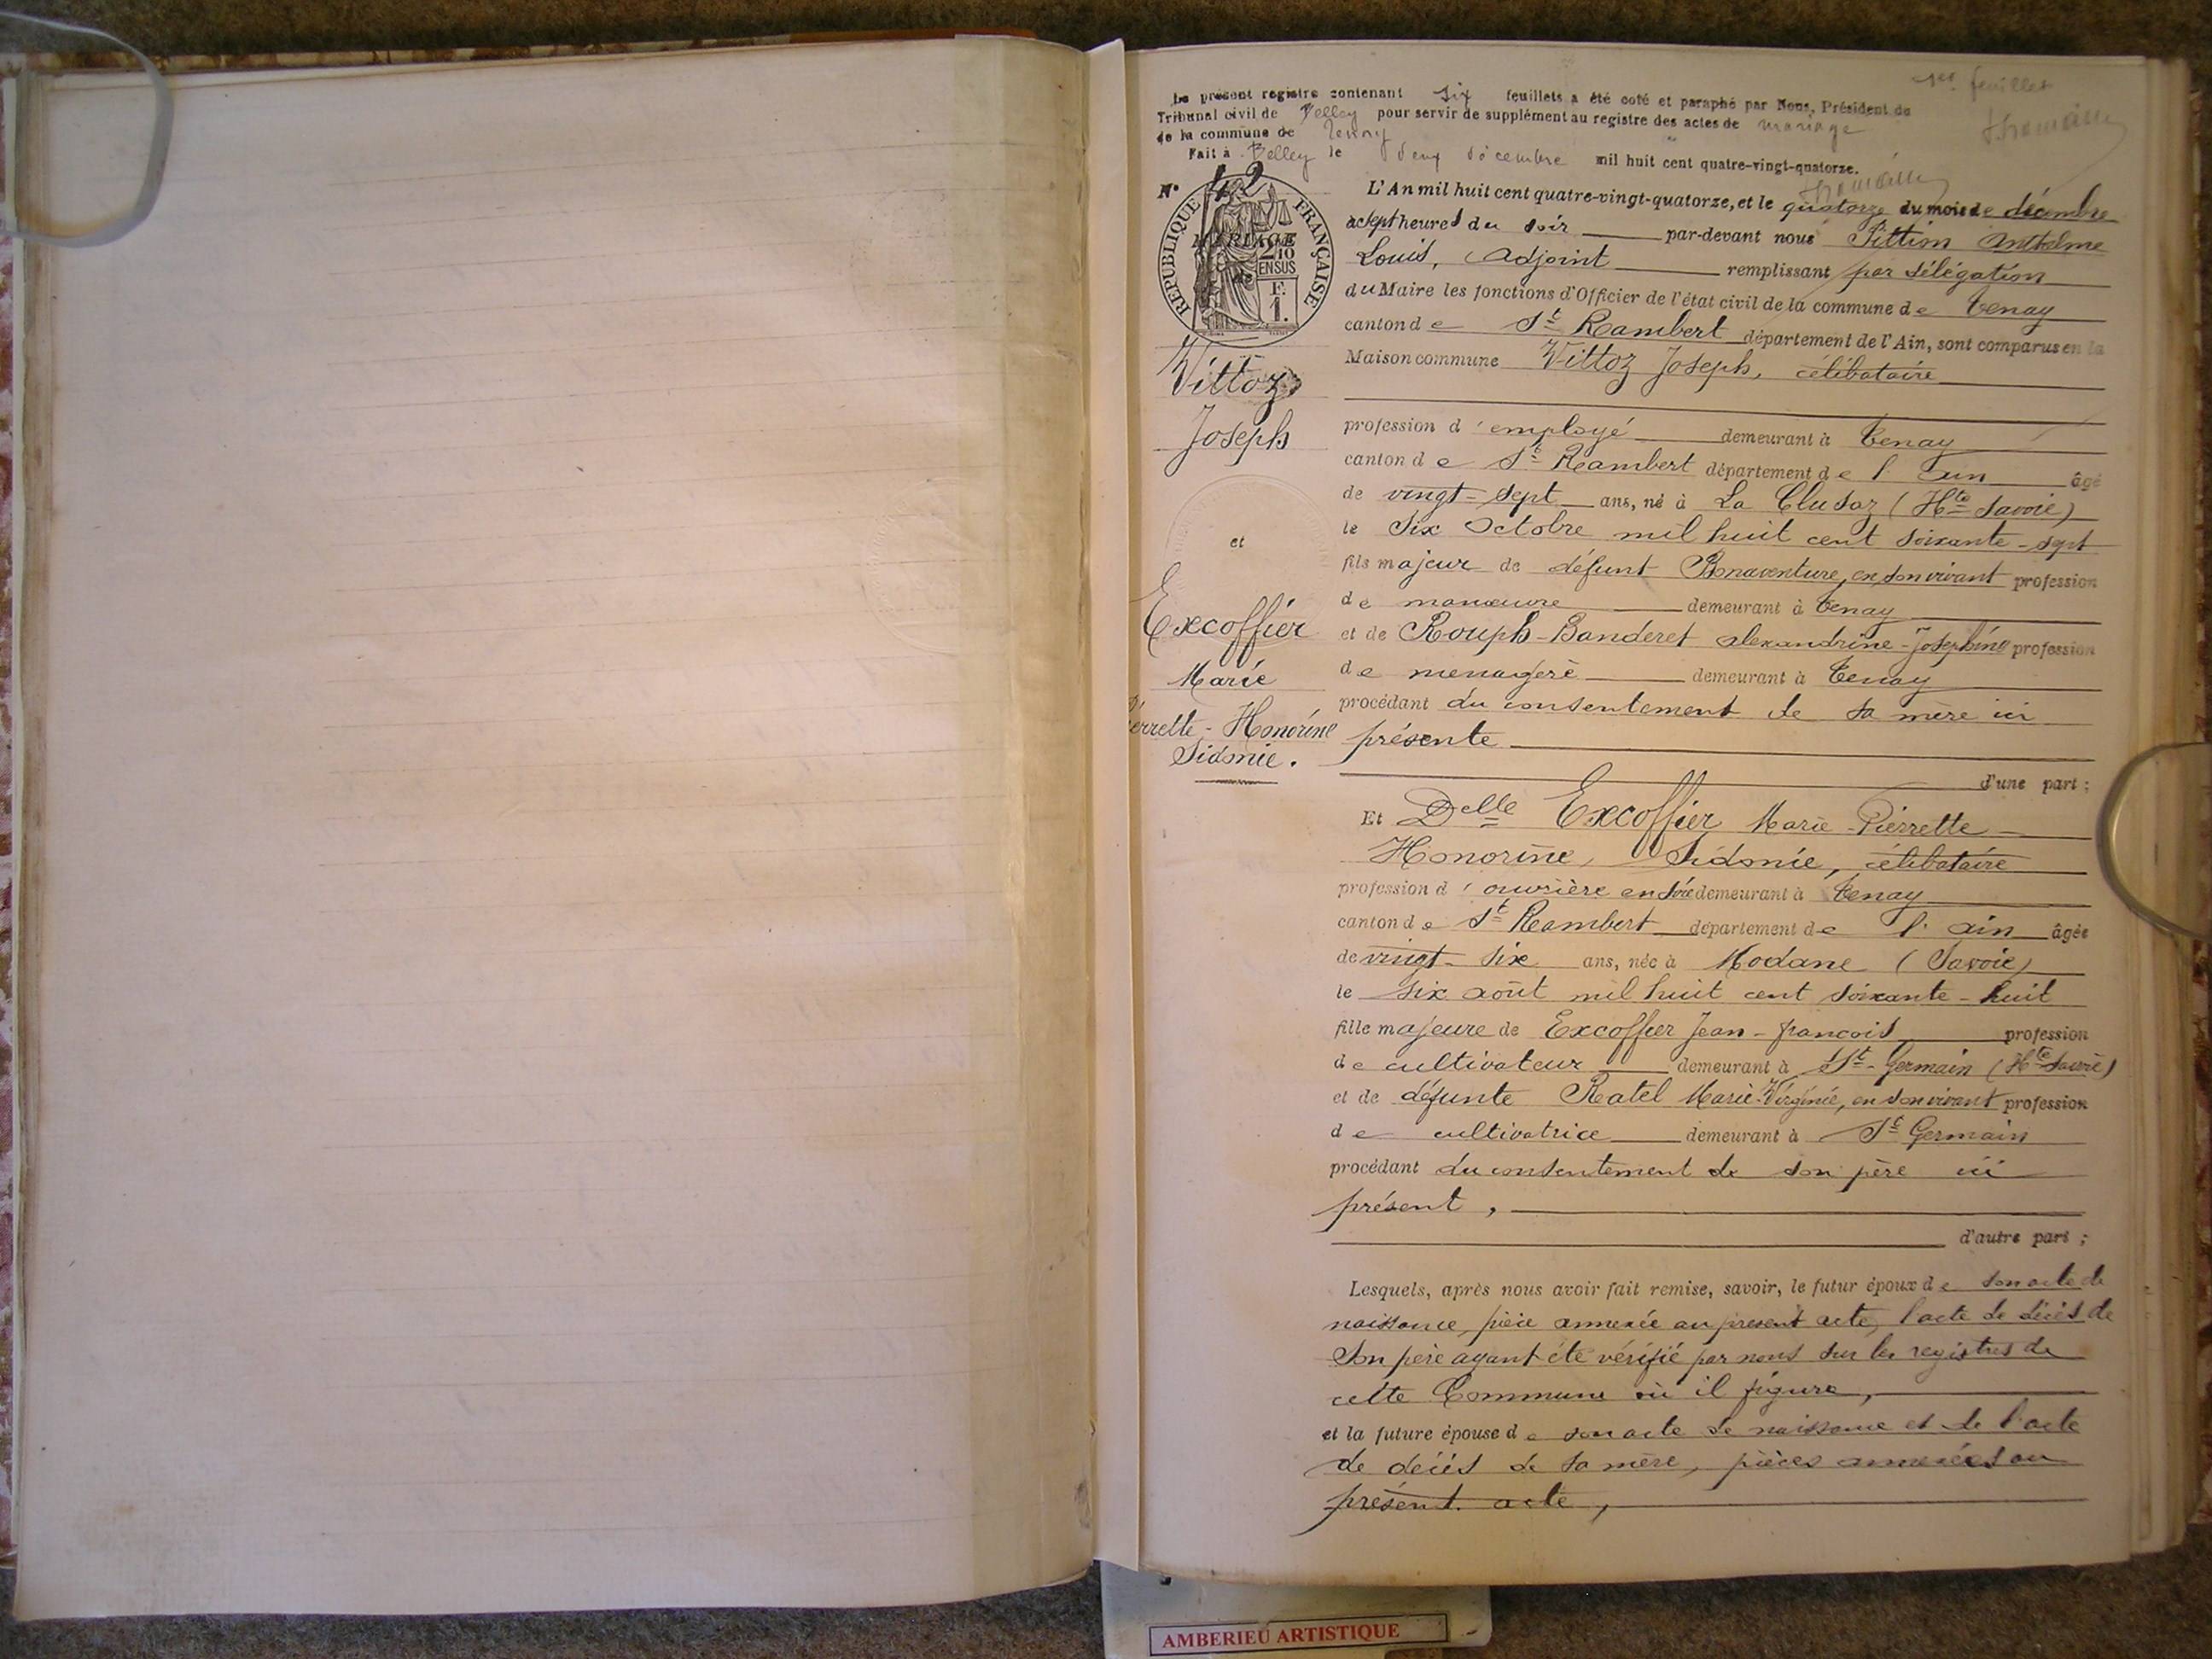 1er feuillet
Le présent registre contenant six feuillets a été coté et paraphé par Nous, Président de
Tribunal civil de Belley pour servir de supplément au registre des actes de mariage
de la commune de Tenay
Fait à Belley le deux décembre mil huit cent quatre-vingt-quatorze.
N° 42
RÉPUBLIQUE FRANÇAISE
MARIAGE
2/10
EN SUS
de
F.
1.
Vittoz
Joseph
et
Excoffier
Marie
Pierrette - Honorine
Sidonie.
L'An mil huit cent quatre-vingt-quatorze, et le quatorze du mois de décembre
à sept heures du soir par-devant nous Pittion Anthelme
Louis, Adjoint remplissant par délégation
du Maire les fonctions d'Officier de l'état civil de la commune de Tenay
canton de St Rambert département de l'Ain, sont comparus en la
Maison commune Vittoz Joseph, célibataire
profession d'employé demeurant à Tenay
canton de St Rambert département de l'Ain âgé
de vingt-sept ans, né à La Clusaz (Hte Savoie)
le six Octobre mil huit cent soixante-sept
fils majeur de défunt Bonaventure, en son vivant profession
de manœuvre demeurant à Tenay
et de Rouph-Banderet Alexandrine-Joséphine profession
de menagère demeurant à Tenay
procédant du consentement de sa mère ici
présente
d'une part ;
Et Delle Excoffier Marie-Pierrette
Honorine, Sidonie, célibataire
profession d'ouvrière en soie demeurant à Tenay
canton de St Rambert département de l'Ain âgée
de vingt-six ans, née à Modane (Savoie)
le six août mil huit cent soixante-huit
fille majeure de Excoffier Jean-françois profession
de cultivateur demeurant à St-Germain (Hte Savoie)
et de défunte Ratel Marie-Virginie, en son vivant profession
de cultivatrice demeurant à St Germain
procédant du consentement de son père ici
présent,
d'autre part ;
Lesquels, après nous avoir fait remise, savoir, le futur époux de son acte de
naissance, pièce annexée au présent acte, l'acte de décès de
son père ayant été vérifié par nous sur les registres de
cette Commune où il figure,
et la future épouse de son acte de naissance et de l'acte
de décès de sa mère, pièces annexées au
présent acte,
AMBERIEU ARTISTIQUE